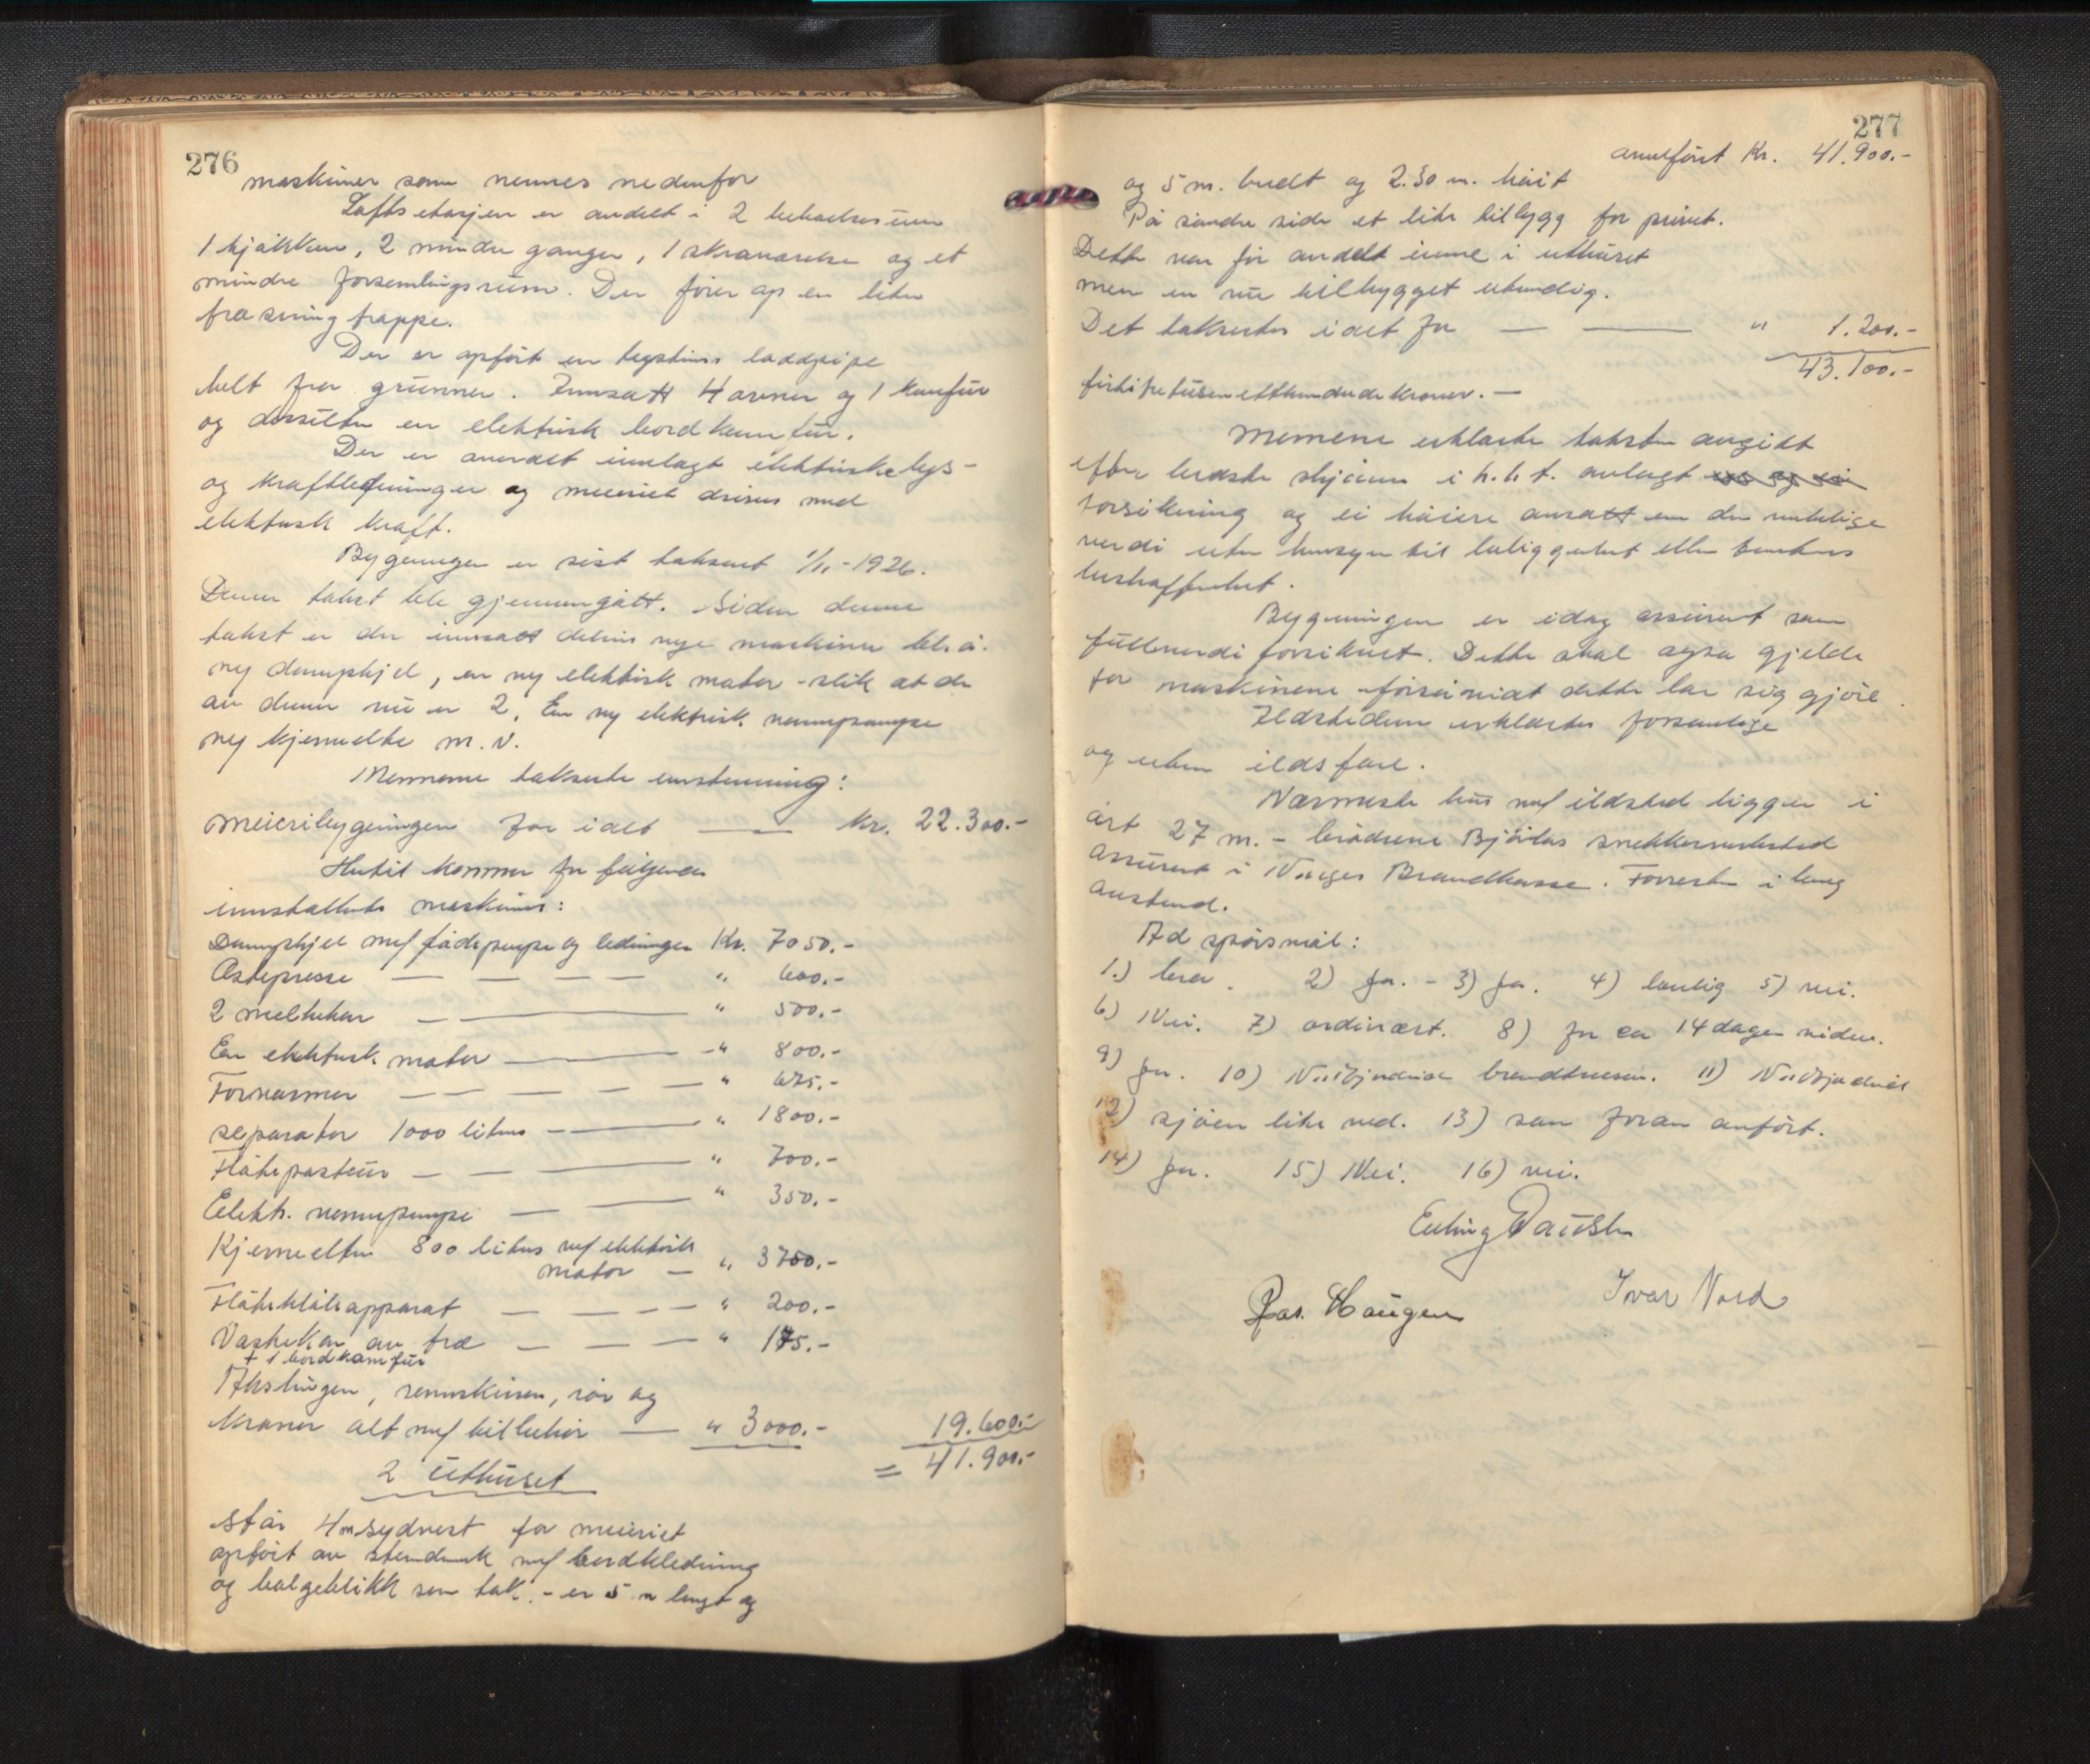 276
maskiner som nevnes nedenfor
Loftsetasjen er avdelt i 2 beboelsesrum
1 kjøkken, 2 mindre ganger, 1 skraværelse og et
mindre forsemlingsrum. Der fører op en liten
fra sving trappe.
Der er opført en teglstens loddpipe
helt fra grunnen. Innsatt 4 ovner og 1 komfur
og dessuten en elektrisk bordkomfur.
Der er overalt innlagt elektriske lys-
og kraftledninger og meieriet drives med
elektrisk kraft.
Bygningen er sist taksert 1/11-1926.
Denne takst ble gjennemgått. Siden denne
takst er der innsatt delvis nye maskiner bl. a.
ny dampkjel, en ny elektrisk motor - slik at der
av denne nu er 2. En ny elektrisk vannpumpe
ny kjerneelte m. v.
Mennene takserte enstemmig:
Meieribygningen for i alt — — kr. 22.300.-
Hertil kommer for følgende
innstallerte maskiner:
Dampkjel m/ fødepumpe og ledninger Kr. 7050.-
Ostepresse — — — — " 600.-
2 melkekar — — " 500.-
En elektrisk motor — — " 800.-
Forvarmer — — — — " 675.-
Separator 1000 liters — — " 1800.-
Fløtepasteur — — — " 700.-
Elektr. vannpumpe — — " 350.-
Kjerneelter 800 liters m/ elektrisk
motor — " 3750.-
Fløtekjøleapparat — — — — " 200.-
Vaskekar av tre — — — " 175.-
+ 1 bordkomfur
Akslinger, remskiver, rør og
Kraner alt m/ tilbehør — " 3000.- 19.600.-
= 41.900.-
2 Uthuset
står 4 m sydvest for meieriet
opført av stenderverk m/ bordkledning
og bølgeblikk som tak. - er 5 m langt og
277
overført Kr. 41.900.-
og 5 m. bredt og 2.30 m. høit
På søndre side et lite tilbygg for privet.
Dette var før avdelt inne i uthuset
men er nu tilbygget utvendig.
Det taksertes i alt for — — " 1.200.-
43.100.-
førtitretusenetthundrede kroner. —
Mennene erklærte taksten avgitt
efter bedste skjønn i h. h. t. avlagt
forsikring og ei høiere ansatt en den virkelige
verdi uten hensyn til beliggenhet eller tomtens
beskaffenhet.
Bygningen er idag assurert som
fullverdi forsikret. Dette skal også gjelde
for maskinene - forsåvidt dette lar sig gjøre.
Ildstedene erklærtes forsvarlige
og uten ildsfare.
Nærmeste hus m/ ildsted ligger i
øst 27 m. - brødrene Bjåstas snekkerverksted
assurert i Norges Brandkasse. Forresten i lang
avstand.
Ad spørsmål:
1.) bra. 2) Ja. - 3) Ja. 4) landlig 5) nei.
6) Nei. 7) ordinært. 8) for ca 14 dager siden.
9) Ja. 10) brandvesen. 11)
12) sjøen like ved. 13) som foran anført.
14) Ja. 15) Nei. 16) nei.
Erling Dauste
Ras. Haugen
Ivar Nord